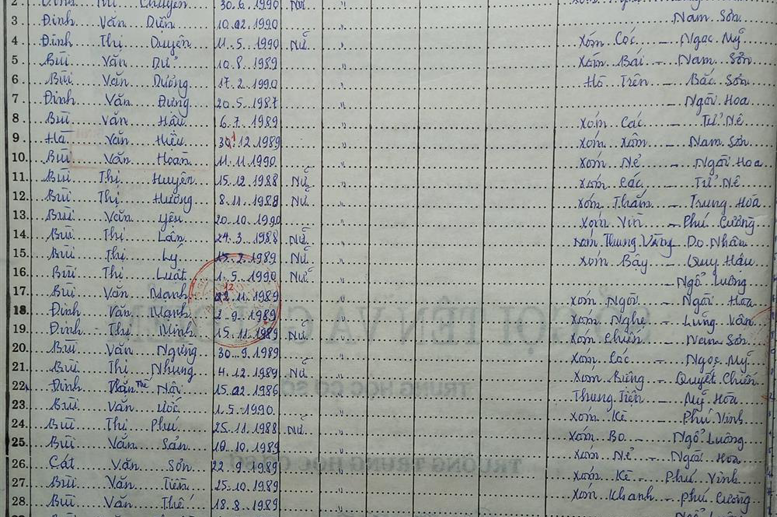 2. Đinh Thị Chuyên 30.6.1990 Nữ
3. Đinh Văn Diện 10.02.1990 Nam Sơn
4. Đinh Thị Duyên 11.5.1990 Nữ " Xóm Cóc - Ngọc Mỹ
5. Bùi Văn Dư 10.8.1989 " Xóm Bái - Nam Sơn
6. Bùi Văn Dương 17.2.1990 " Hồ Trên - Bắc Sơn
7. Đinh Văn Đưng 20.5.1987 " Ngòi Hoa
8. Bùi Văn Hậu 6.7.1989 " Xóm Các - Tử Nê
9. Hà Văn Hiếu 30.12.1989 " Xóm Xôm - Nam Sơn
10. Bùi Văn Hoan 11.11.1990 " Xóm Nẻ - Ngòi Hoa
11. Bùi Thị Huyên 15.12.1988 Nữ " Xóm Các - Tử Nê
12. Bùi Thị Hương 8.11.1988 Nữ " Xóm Thăm - Trung Hoà
13. Bùi Văn Yêu 20.10.1990 " Xóm Vin - Phú Cường
14. Bùi Thị Lân 24.3.1988 Nữ " Do Nhân
15. Bùi Thị Ly 15.2.1989 Nữ " Xóm Bậy - Quy Hậu
16. Bùi Thị Luật 1.5.1990 Nữ " Ngổ Luông
17. Bùi Văn Mạnh 22.11.1989 " Xóm Ngòi - Ngòi Hoa
18. Đinh Văn Mạnh 2.9.1989 " Xóm Nghẹ - Lũng Vân
19. Đinh Thị Minh 15.11.1989 Nữ " Xóm Chiến - Nam Sơn
20. Bùi Văn Ngưng 30.9.1989 " Xóm Cóc - Ngọc Mỹ
21. Bùi Thị Nhung 4.12.1989 Nữ " Xóm Biệng - Quyết Chiến
22. Đinh 15.02.1986 " Thung Tiện - Mỹ Hoà
23. Bùi Văn Ước 1.5.1990 " Xóm Kè - Phú Vinh
24. Bùi Thị Phú 25.11.1988 Nữ " Xóm Bo - Ngổ Luông
25. Bùi Văn Sản 10.10.1989 " Xóm Nẻ - Ngòi Hoa
26. Cát Văn Sơn 1989 " Xóm Kè - Phú Vinh
27. Bùi Văn Tiến 25.10.1989 " Xóm Khanh - Phú Cường
28. Bùi Văn Thế 18.8.1989 "